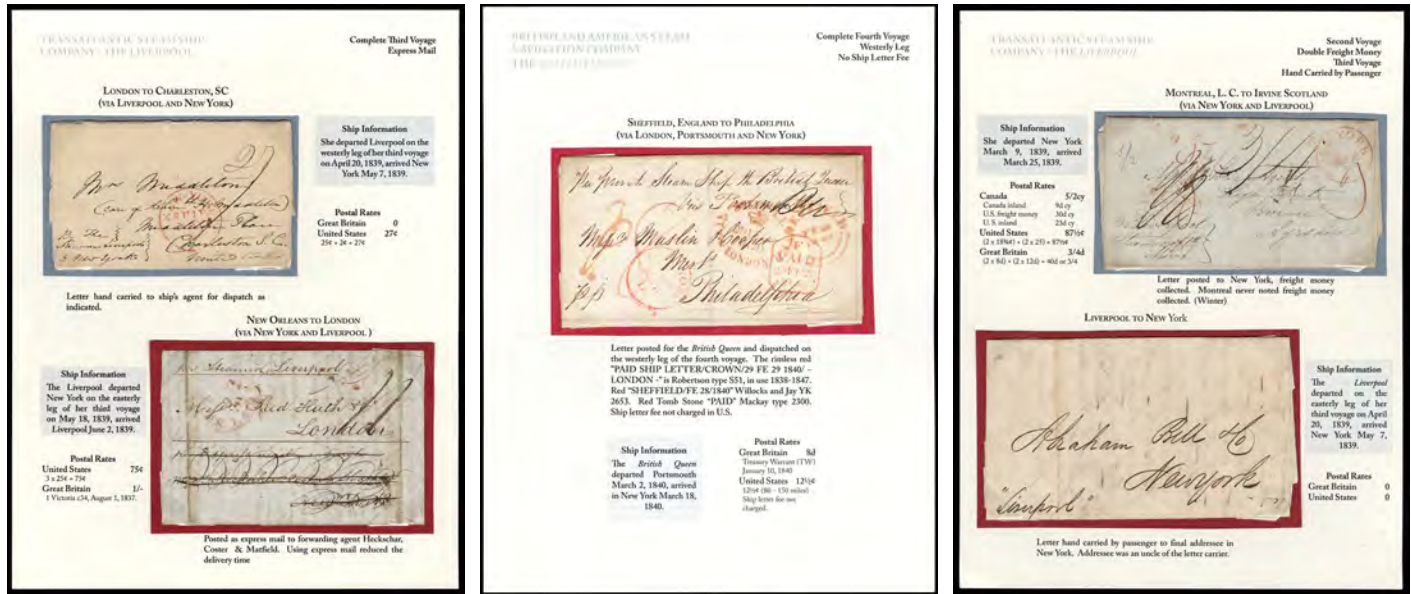 TRANSATLANTIC STEAM SHIP
COMPANY - THE LIVERPOOL
Complete Third Voyage
Express Mail
LONDON TO CHARLESTON, SC
(VIA LIVERPOOL AND NEW YORK)
27
Charleston S.C.
Ship Information
She departed Liverpool on the
westerly leg of her third voyage
on April 20, 1839, arrived New
York May 7, 1839.
Postal Rates
Great Britain 0
United States 27¢
25¢ + 2¢ = 27¢
Letter hand carried to ship's agent for dispatch as
indicated.
NEW ORLEANS TO LONDON
(VIA NEW YORK AND LIVERPOOL )
Ship Information
The Liverpool departed
New York on the easterly
leg of her third voyage
on May 18, 1839, arrived
Liverpool June 2, 1839.
Postal Rates
United States 75¢
3 x 25¢ = 75¢
Great Britain 1/-
1 Victoria c34, August 1, 1837.
per Steamer Liverpool
London
Posted as express mail to forwarding agent Heckschar,
Coster & Matfield. Using express mail reduced the
delivery time
BRITISH AND AMERICAN STEAM
NAVIGATION COMPANY
Complete Fourth Voyage
Westerly Leg
No Ship Letter Fee
SHEFFIELD, ENGLAND TO PHILADELPHIA
(VIA LONDON, PORTSMOUTH AND NEW YORK)
Per Private Steam Ship the British Queen
Messrs Maslin Hooper
Philadelphia
PAID
LONDON
Letter posted for the British Queen and dispatched on
the westerly leg of the fourth voyage. The rimless red
"PAID SHIP LETTER/CROWN/29 FE 29 1840/ -
LONDON -" is Robertson type S51, in use 1838-1847.
Red "SHEFFIELD/FE 28/1840" Willocks and Jay YK
2653. Red Tomb Stone "PAID" Mackay type 2300.
Ship letter fee not charged in U.S.
Ship Information
The British Queen
departed Portsmouth
March 2, 1840, arrived
in New York March 18,
1840.
Postal Rates
Great Britain 8d
Treasury Warrant (TW)
January 10, 1840
United States 12½¢
12½¢ (80 - 150 miles)
Ship letter fee not
charged.
TRANSATLANTIC STEAM SHIP
COMPANY - THE LIVERPOOL
Second Voyage
Double Freight Money
Third Voyage
Hand Carried by Passenger
MONTREAL, L. C. TO IRVINE SCOTLAND
(VIA NEW YORK AND LIVERPOOL)
Ship Information
She departed New York
March 9, 1839, arrived
March 25, 1839.
Postal Rates
Canada 5/2cy
Canada inland 9d cy
U.S. freight money 30d cy
U.S. inland 23d cy
United States 87½¢
(2 x 18¾¢) + (2 x 25) = 87½¢
Great Britain 3/4d
(2 x 8d) + (2 x 12d) = 40d or 3/4
Letter posted to New York, freight money
collected. Montreal never noted freight money
collected. (Winter)
LIVERPOOL TO New York
Abraham Bell & Co
Newyork
"Liverpool"
Ship Information
The Liverpool
departed on the
easterly leg of her
third voyage on April
20, 1839, arrived
New York May 7,
1839.
Postal Rates
Great Britain 0
United States 0
Letter hand carried by passenger to final addressee in
New York. Addressee was an uncle of the letter carrier.